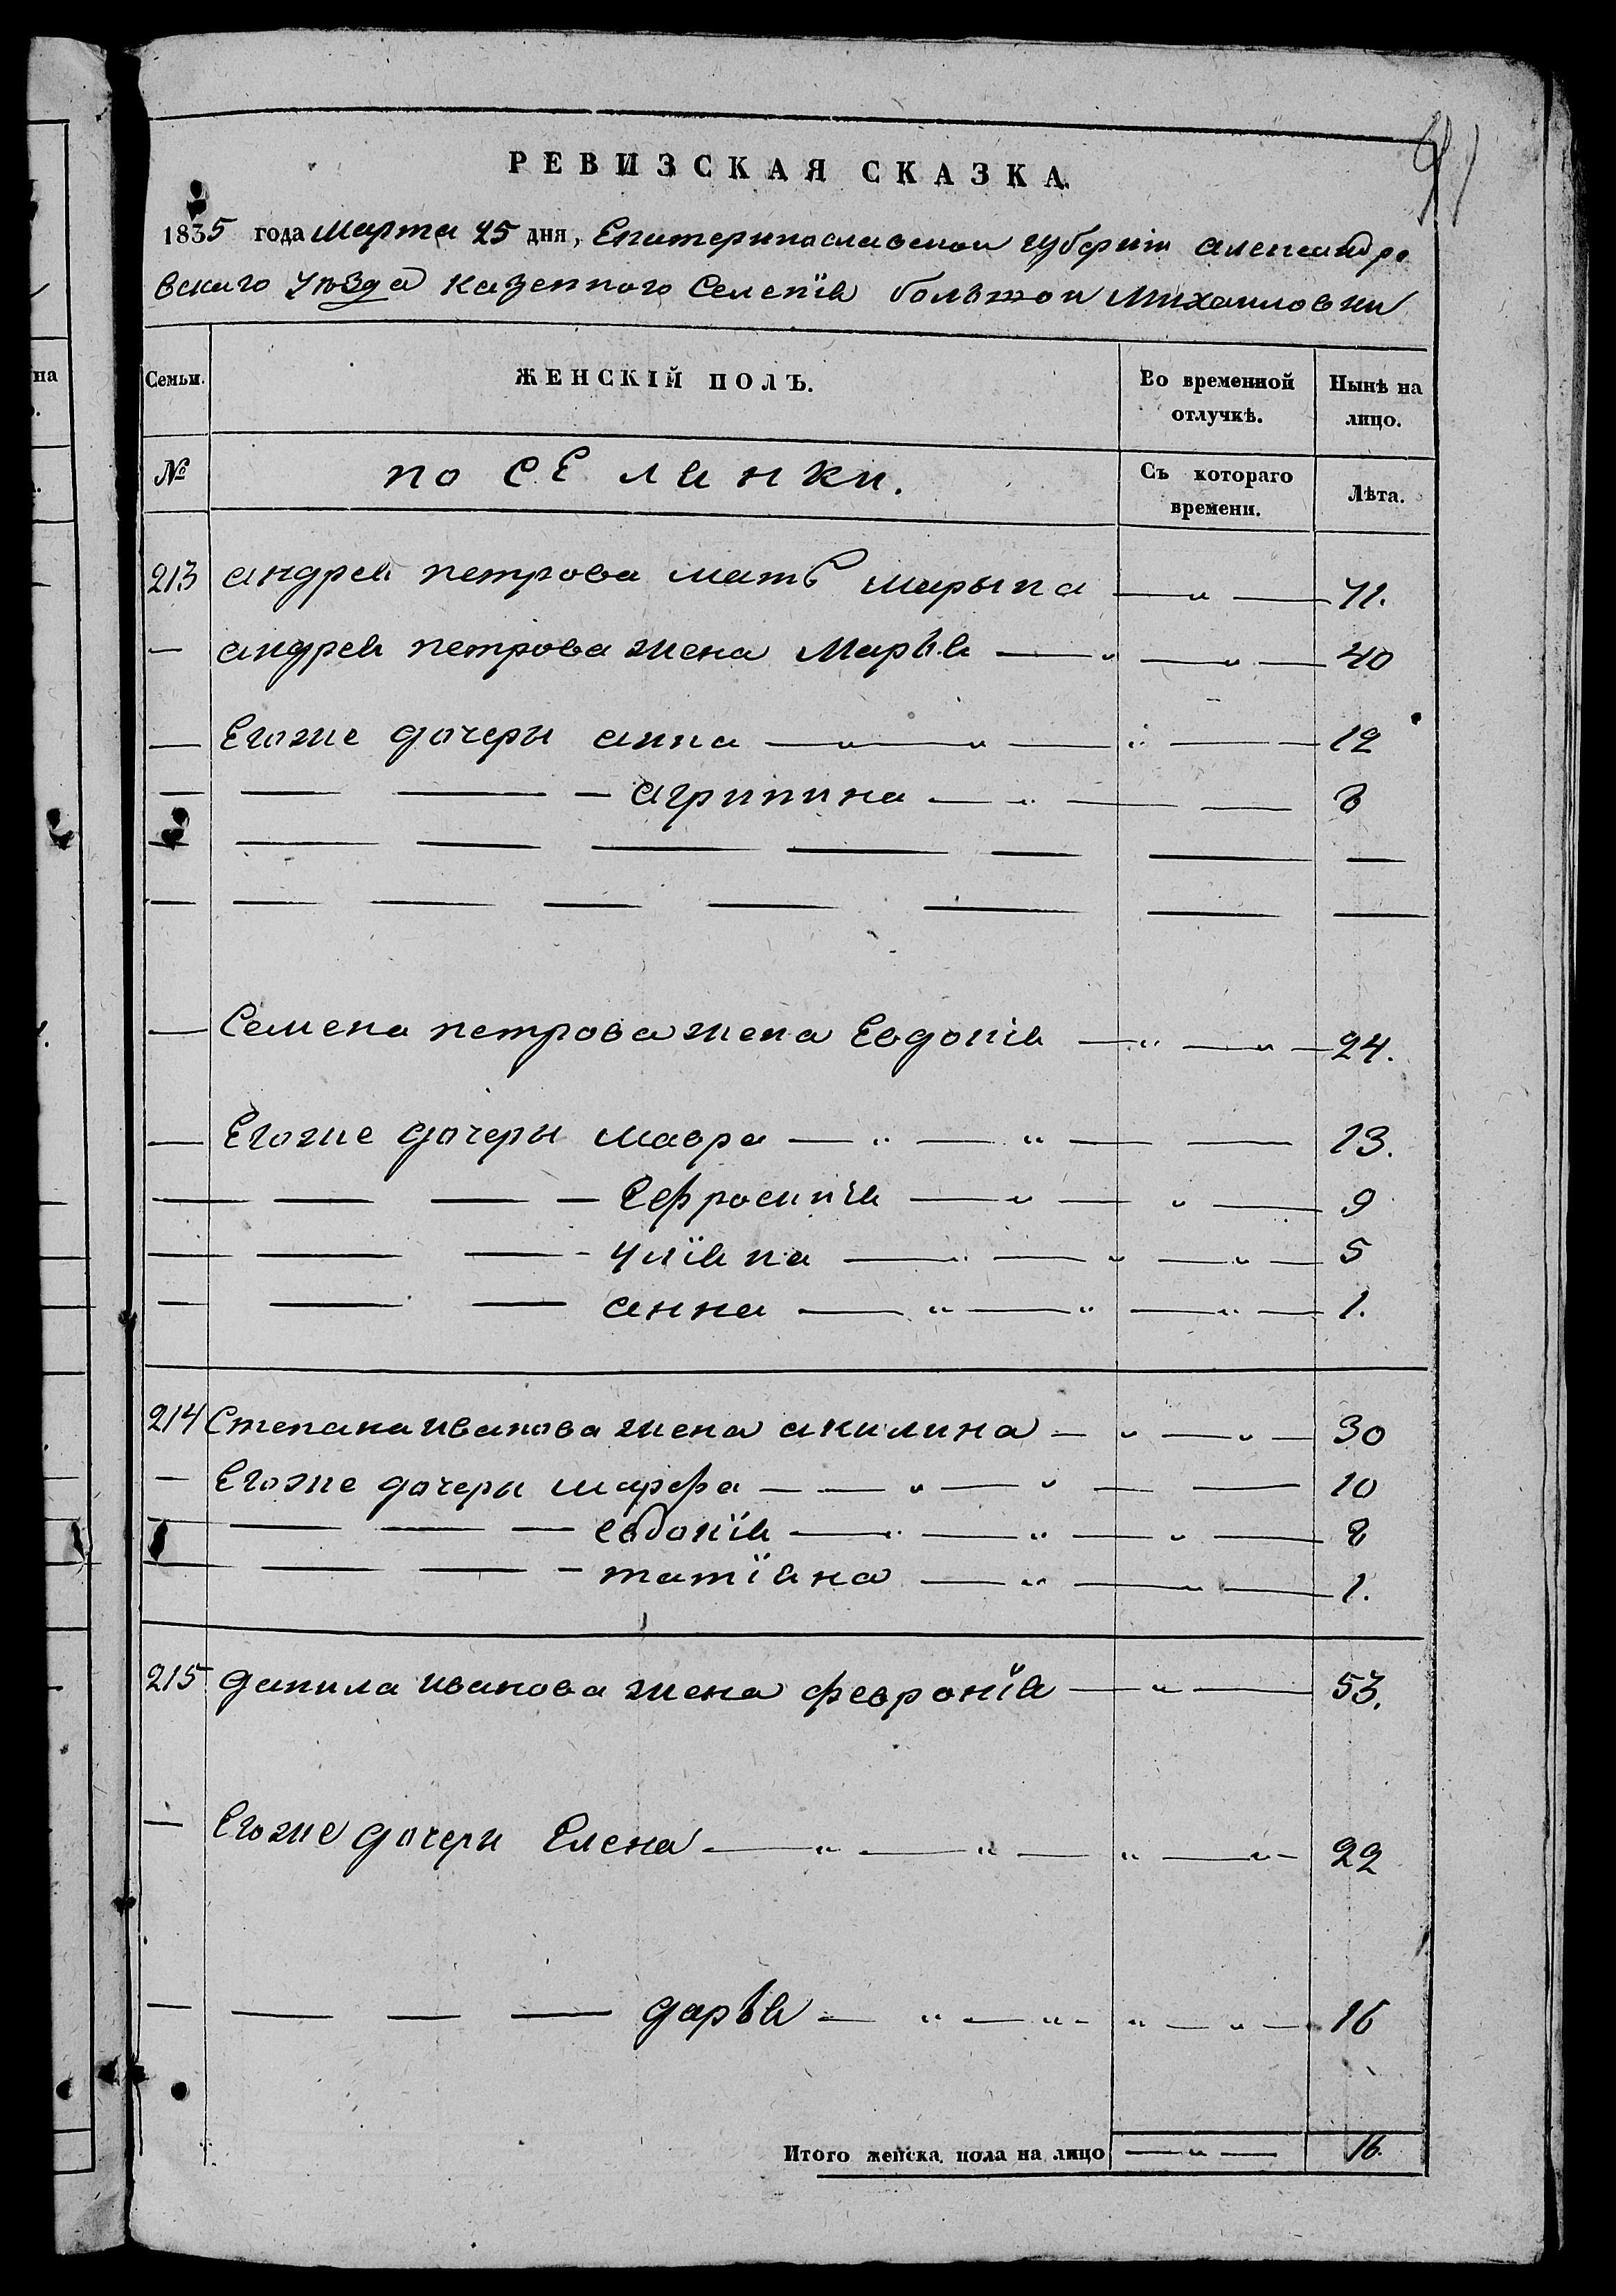 РЕВИЗСКАЯ СКАЗКА.
1835 года марта 25 дня, Екатеринославской губерніи александро
вскаго уѣзда казенного Селенія большой михаиловки
Семьи. ЖЕНСКІЙ ПОЛЪ. Во временной отлучкѣ. Нынѣ на лицо.
№ поСЕлянки. Съ котораго времени. Лѣта.
213 андрея петрова мать марына — „ — 71.
— андрея петрова жена Марья — „ — „ — 40
— Егоже дочеры анна — „ — „ — „ — 12
— — — — агрипина — „ — — 8
— Семена петрова жена Евдокія — „ — „ — 24.
— Егоже дочеры мавра — „ — „ — — 13.
— — — — Ефросинія — „ — „ — 9
— — — — уліяна — „ — „ — „ — 5
— — — анна — „ — „ — „ — 1.
214 Степана иванова жена акилина — „ — „ — 30
— Егоже дочеры марфа — — „ — „ — — 10
— — — евдокія — „ — „ — „ — 8
— — — — татіяна — „ — „ — 1.
215 данила иванова жена февронія — „ — 53.
— Егоже дочери Елена — „ — „ — „ — „ — 22
— — — — дарья — „ — „ — „ — „ — 16
Итого женска пола на лицо — „ — 16.